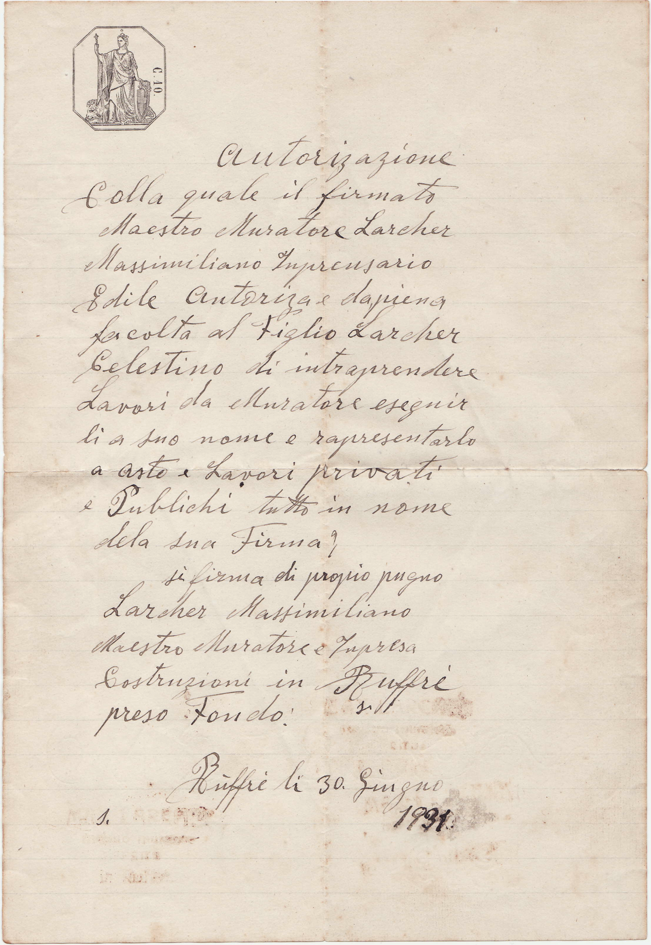 C. 10.
Autorizazione
Colla quale il firmato
Maestro Muratore Larcher
Massimiliano Inprensario
Edile Autoriza e dapiena
facolta al Figlio Larcher
Celestino di intraprendere
Lavori da Muratore eseguir
li a suo nome e rapresentarlo
a aste e Lavori privati
e Publichi tutto in nome
dela sua Firma
si firma di propio pugno
Larcher Massimiliano
Maestro Muratore e Inpresa
Costruzioni in Ruffrè
preso Fondo.
Ruffrè li 30. Giugno
s. 1931.